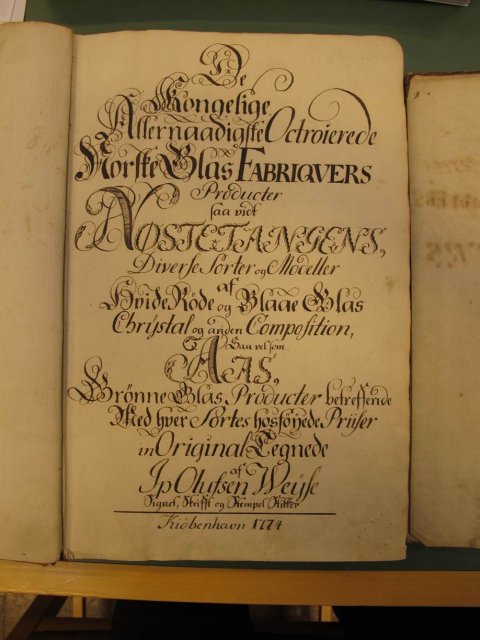 De
Kongelige
Allernaadigste Octroierede
Norske Glas FABRIQVERS
Producter
saa vidt
NØSTETANGENS,
Diverse Sorter og Modeller
af
Hvide Røde og Blaae Glas
Chrystal og anden Composition,
Saa vel som
AAS,
Grönne Glas Producter betreffende
Med hver Sortes hosföyede Prüser
in Original Tegnede
af
Ip Olufsen Weyse
Signet, Skrifft og Stempel Stikker
Kiöbenhavn 1774